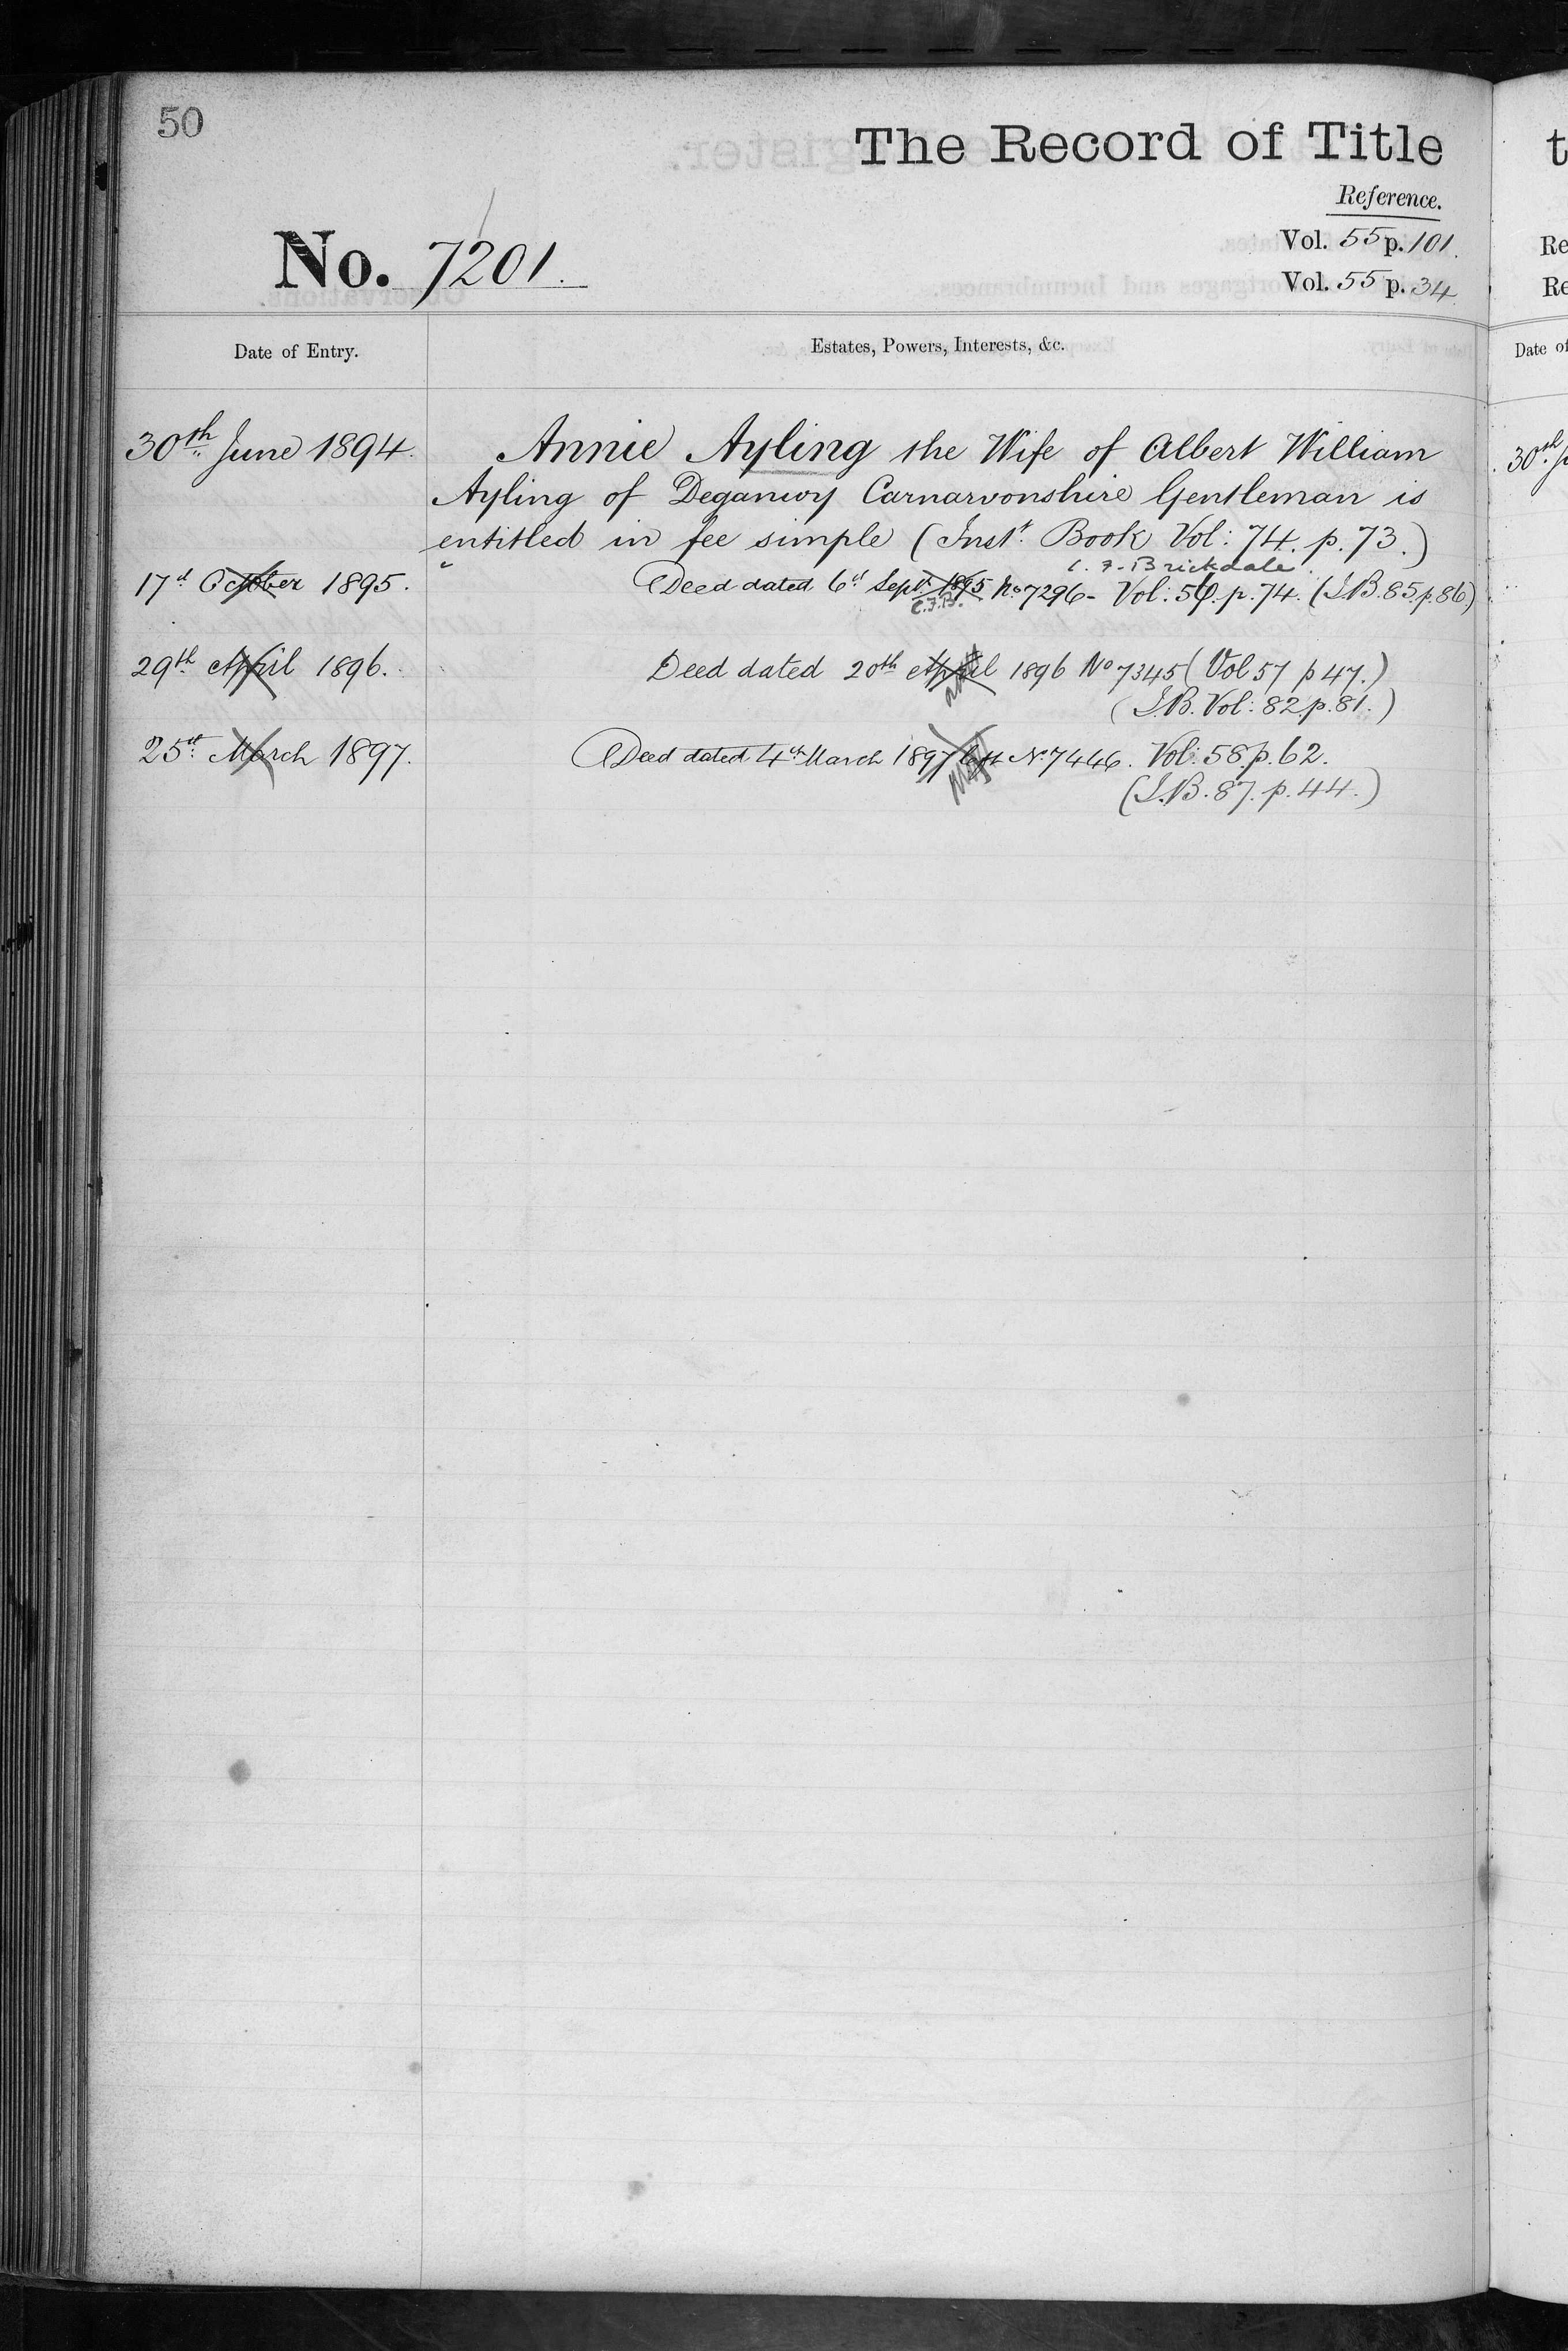 50
The Record of Title
Reference.
No. 7201.
Vol. 55 p. 101.
Vol. 55 p. 34
Date of Entry.
Estates, Powers, Interests, &c.
30th June 1894. Annie Ayling the Wife of Albert William
Ayling of Deganwy Carnarvonshire Gentleman is
entitled in fee simple (Inst. Book Vol: 74. p. 73.)
C. F. Brickdale
17th October 1895. Deed dated 6th Sept. 1895 No 7296 - Vol: 56. p. 74. (I.B. 85. p. 86.)
C.F.B.
29th April 1896. Deed dated 20th April 1896 No 7345 (Vol 57 p 47.)
(I.B. Vol: 82. p. 81.)
25th March 1897. Deed dated 4th March 1897 No. 7446. Vol: 58. p. 62.
(I.B. 87. p. 44.)
t
Re
Re
Date of
30th